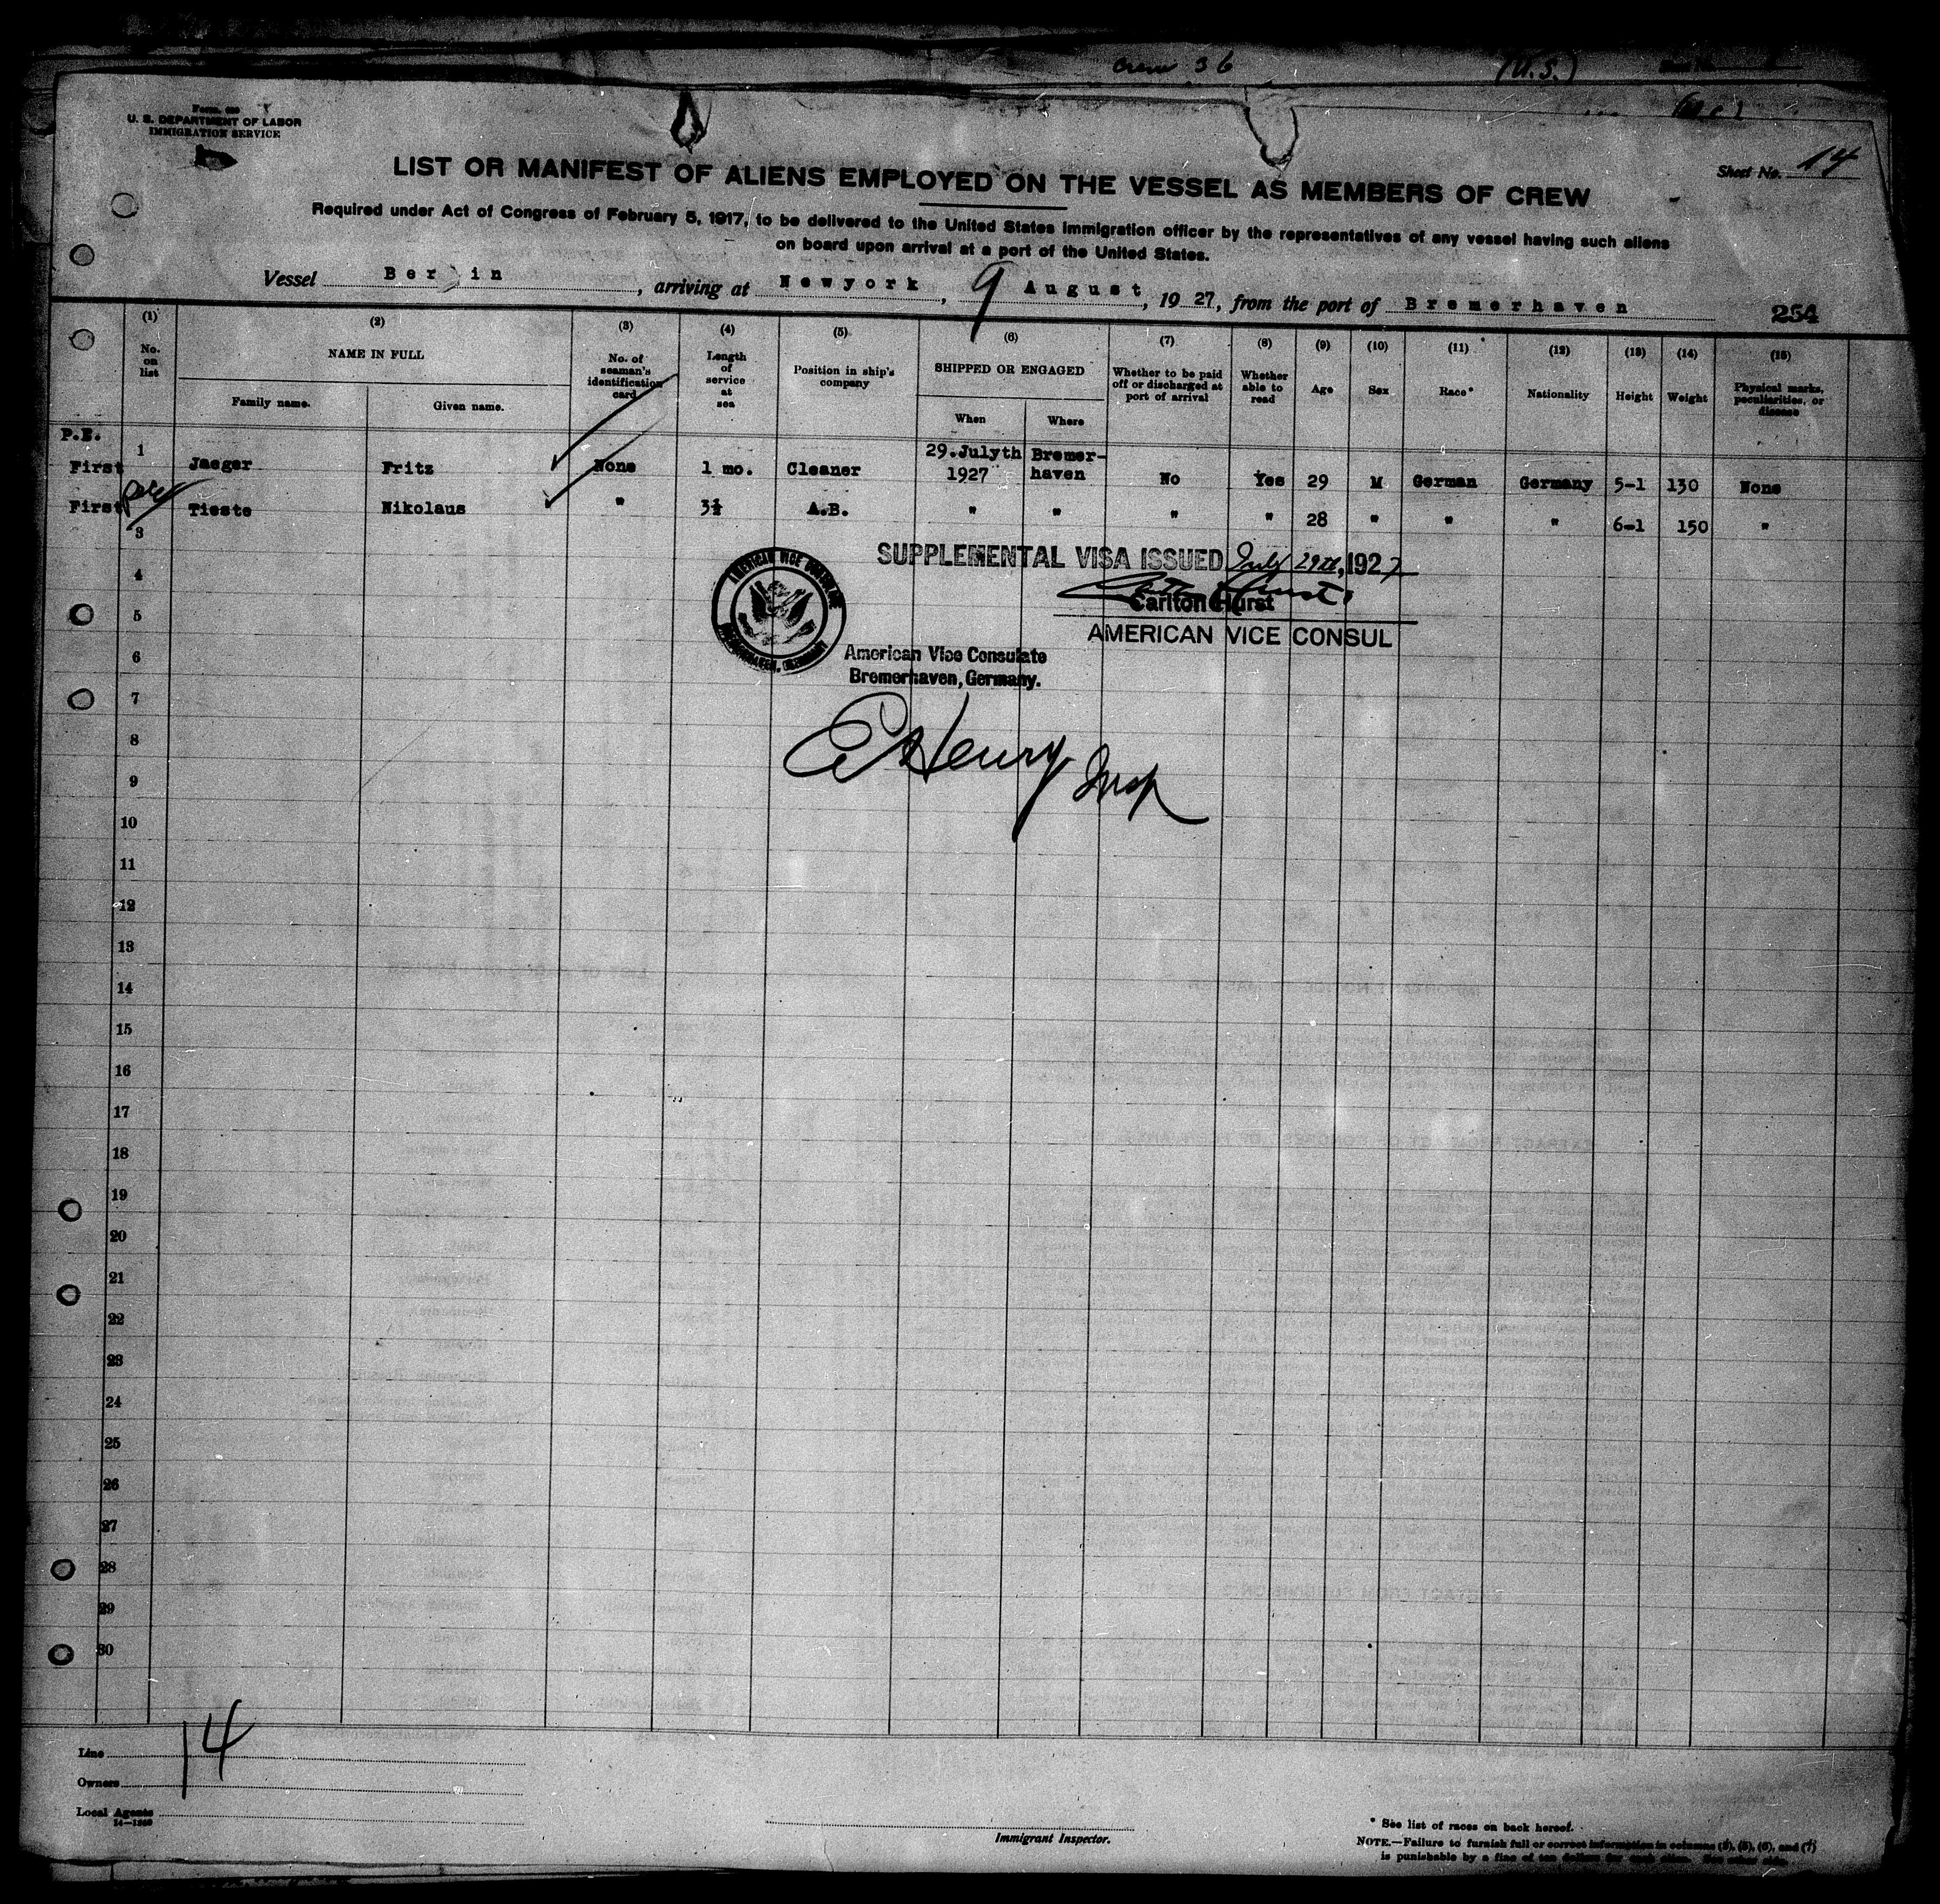 Crew 36
(U.S.)
U. S. DEPARTMENT OF LABOR
IMMIGRATION SERVICE
Sheet No. 14
LIST OR MANIFEST OF ALIENS EMPLOYED ON THE VESSEL AS MEMBERS OF CREW
Required under Act of Congress of February 5, 1917, to be delivered to the United States immigration officer by the representatives of any vessel having such aliens
on board upon arrival at a port of the United States.
Vessel Berlin, arriving at Newyork, 9 August, 1927, from the port of Bremerhaven
254
(1) (2) (3) (4) (5) (6) (7) (8) (9) (10) (11) (12) (13) (14) (15)
No. on list NAME IN FULL No. of seaman's identification card Length of service at sea Position in ship's company SHIPPED OR ENGAGED Whether to be paid off or discharged at port of arrival Whether able to read Age Sex Race* Nationality Height Weight Physical marks, peculiarities, or disease
Family name. Given name. When Where
P.E.
1 First Jaeger Fritz None 1 mo. Cleaner 29.Julyth 1927 Bremer-haven No Yes 29 M German Germany 5-1 130 None
First Tieste Nikolaus " 3½ A.B. " " " " 28 " " " 6-1 150 "
3
SUPPLEMENTAL VISA ISSUED July 29th, 1927
4
Carlton Hurst
5
AMERICAN VICE CONSUL
6
American Vice Consulate
Bremerhaven, Germany.
7
8
E Henry Insp
9
10
11
12
13
14
15
16
17
18
19
20
21
22
23
24
25
26
27
28
29
30
14
Line
Owners
Local Agents
Immigrant Inspector.
* See list of races on back hereof.
NOTE.—Failure to furnish full or correct information in columns (2), (5), (6), and (7)
is punishable by a fine of ten dollars for each alien.